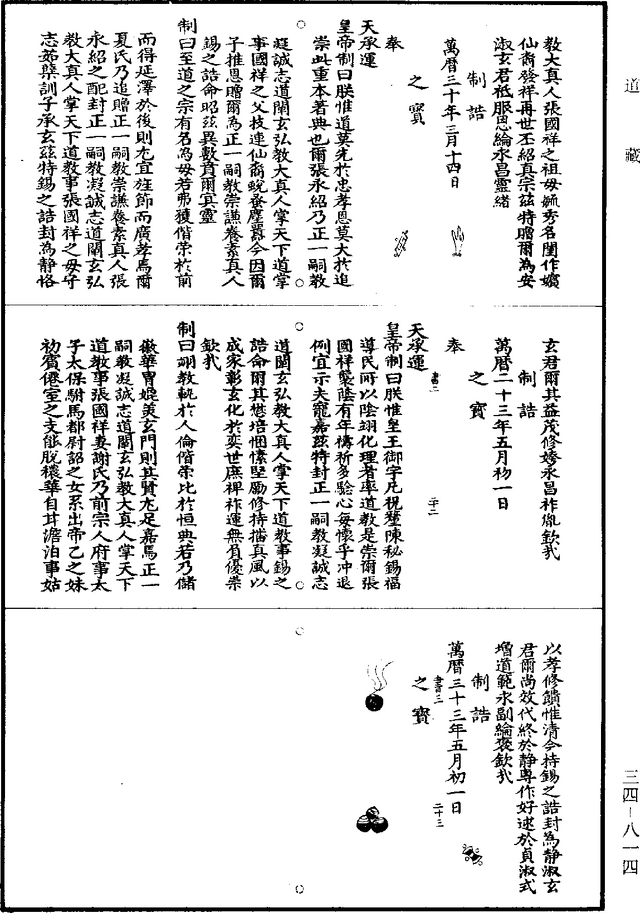 道藏
教大真人張國祥之祖母毓秀名閨作嬪
仙裔發祥再世丕紹真宗兹特贈爾為安
淑玄君祗服恩綸永昌靈緒
制誥
萬曆三十年三月十四日
之寶
奉
天承運
皇帝制曰朕惟道莫先於忠孝恩莫大於追
崇此重本著典也爾張永紹乃正一嗣教
凝誠志道闡玄弘教大真人掌天下道掌
事國祥之父技連仙裔蛻塵囂今因爾
子推恩贈爾為正一嗣教崇謙養素真人
錫之誥命昭兹異數賁爾冥靈
制曰至道之宗有名為母若弗獲偕榮於前
而得延澤於後則尤宜旌節而廣孝焉爾
夏氏乃追贈正一嗣教崇謙養素真人張
永紹之配封正一嗣教凝誠志道闡玄弘
教大真人掌天下道教事張國祥之母守
志茹檗訓子承玄兹特錫之誥封為靜恪
玄君爾其益茂修姱永昌祚胤欽哉
制誥
萬曆二十三年五月初一日
之寶
奉
書二
二十二
天承運
皇帝制曰朕惟皇王御宇凡祝釐陳秘錫福
導民所以陰翊化理者率道教是崇爾張
國祥襲蔭有年禱祈多驗心每懷乎冲退
例宜示夫寵嘉兹特封正一嗣教凝誠志
道闡玄弘教大真人掌天下道教事錫之
誥命爾其懋培悃愫堅勵修持播真風以
成家彰玄化於奕世庶裨祚運無負優崇
欽哉
制曰詡教軌於人倫偕榮比於恒典若乃儲
徽華胄媲美玄門則其賢尤足嘉焉正一
嗣教凝誠志道闡玄弘教大真人掌天下
道教事張國祥妻謝氏乃前宗人府事太
子太保駙馬都尉詔之女系出帝乙之妹
初賓僊室之支能脫穠華自甘澹泊事姑
以孝修饋惟清今特錫之誥封為靜淑玄
君爾尚效代終於靜專作好逑於貞淑式
增道範永副綸褒欽哉
制誥
萬曆三十三年五月初一日
書三
二十三
之寶
三四-八一四